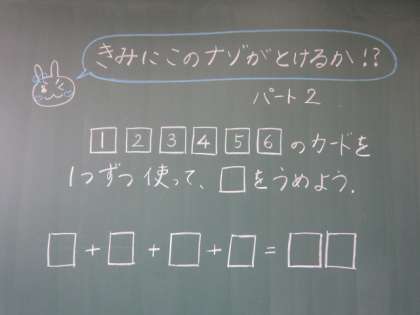 きみにこのナゾがとけるか!?
パート2
1 2 3 4 5 6 のカードを
1つずつ使って、□をうめよう.
□+□+□+□=□□